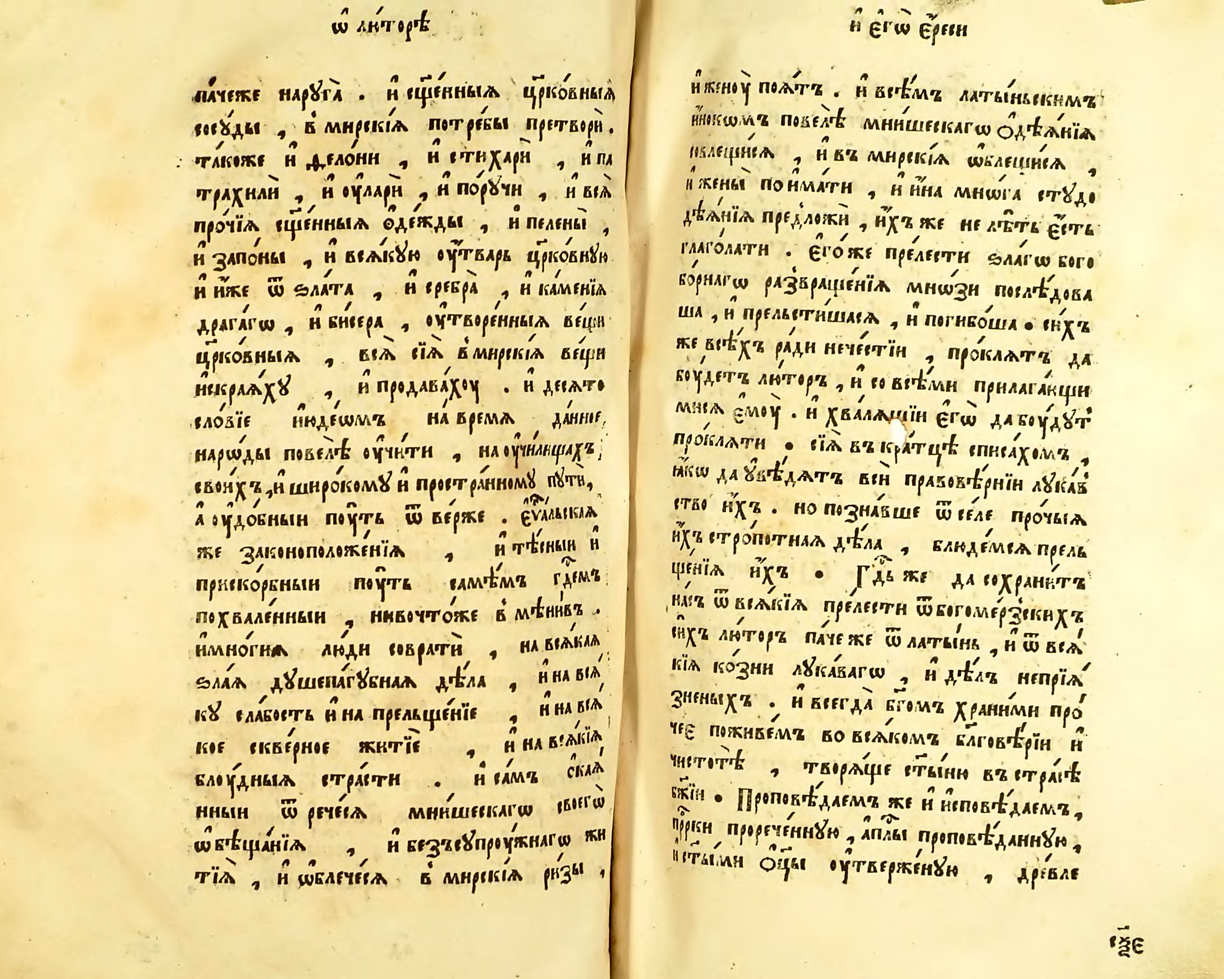 ѡ҃ лю́торѣ
па́чеже нарꙋга̀ . и҆ сщ҃е́нныѧ цр҃ко́вныѧ
сосꙋ́ды , в̾ мирскі́ѧ потре́бы претворѝ .
та́коже и҆ делѡ́ни , и҆ стихарѝ , и҆ па
трахилѝ , и҆ ᲂу҆ларѝ , и҆ по́рꙋчи , и҆ всѧ̀
про́чїѧ сщ҃е́нныѧ ѻ҆де́жды , и҆ пелены̀ ,
и҆ запо́ны , и҆ всѧ́кꙋю ᲂу҆́тварь цр҃ко́внꙋю
и҆ и҆́же ѿ ѕла́та , и҆ сребра̀ , и҆ ка́менїѧ
драга́гѡ , и҆ би́сера , ᲂу҆творе́нныѧ ве́щи
цр҃ко́вныѧ , всѧ̀ сїѧ̀ в̾ мирскі́ѧ ве́щи
искраѧ́хꙋ , и҆ продава́хоу . и҆ десѧто
сло́вїе и҆ꙋде́ѡмъ на вре́мѧ да́нное ,
наро́ды повелѣ̀ ᲂу҆чи́ти , на ᲂу҆чи́лищахъ
свои́хъ , и҆ широ́комꙋ и҆ простра́нномꙋ пꙋтѝ ,
а҆ ᲂу҆до́бныи поу́ть ѿ ве́рже . є҆ѵⷢ҇альскаѧ
же законоположе́нїѧ , и҆ тѣ́сныи и҆
приско́рбныи поу́ть самѣ́мъ гдⷭ҇емъ
похвале́нныи , нивочто́же в̾ мѣни́въ .
и҆ мно́гиѧ лю́ди совратѝ , на всѧ́каѧ
ѕла́ѧ дꙋшепа́гꙋбнаѧ дѣ́ла , и҆ на всѧ́
кꙋ сла́бость и҆ на прельще́нїе , и҆ на всѧ́
кое скве́рное житїѐ , и҆ на всѧ́кїѧ
блоу́дныѧ стра́сти . и҆ са́мъ ѻ҆каѧ́
нныи ѿ рече́сѧ мни́шескагѡ своегѡ̀
ѡ҆бѣща́нїѧ , и҆ безъсꙋпроу́жнагѡ жи
тїѧ̀ , и҆ ѡ҆блече́сѧ в̾ мирскі́ѧ ри́зы ,
и҆ є҆гѡ̀ є҆́реси
и҆ женоу̀ поѧ́тъ . и҆ всѣ́мъ латы́ньскимъ
и҆́нокѡмъ повелѣ̀ мни́шескагѡ ѻ҆дѣѧ́нїѧ
совлещи́сѧ , и҆ въ мирскі́ѧ ѡ҆блещи́сѧ ,
и҆ жены̀ поима́ти , и҆ и҆́на мнѡ́га стꙋдо
дѣѧ́нїѧ предложѝ , и҆́хъ же не лѣ́ть є҆́сть
глаго́лати . є҆го́же пре́лести ѕла́гѡ бого
бо́рнагѡ развраще́нїѧ мно́зи послѣ́дова
ша , и҆ прельсти́шасѧ , и҆ погибо́ша . си́хъ
же всѣ́хъ ра́ди нече́стїи , про́клѧтъ да
боу́детъ лю́торъ , и҆ со всѣ́ми прилага́ющи
мисѧ є҆моу̀ . и҆ хва́лѧщїи є҆гѡ̀ да боу́дꙋт
про́клѧти . сїѧ̀ въ кра́тцѣ списа́хомъ ,
ꙗ҆́кѡ да ᲂу҆вѣ́дѧтъ всѝ правовѣ́рнїи лꙋка́в
ство и҆́хъ . но позна́вше ѿ се́ле про́чыѧ
и҆́хъ стро́потнаѧ дѣ́ла , блюде́мсѧ прель
ще́нїѧ и҆́хъ . Гдⷭ҇ь же да сохрани́тъ
на́съ ѿ всѧ́кїѧ пре́лести ѿ богоме́рзскихъ
си́хъ лю́торъ па́че же ѿ латы́нь , и҆ ѿ всѧ́
кїѧ ко́зни лꙋка́вагѡ , и҆ дѣ́лъ непрїѧ́
зненыхъ . и҆ всегда̀ бг҃омъ храни́ми про́
чее поживе́мъ во всѧ́комъ бл҃говѣ́рїи и҆
чистотѣ̀ , творѧ́ще ст҃ы́ню въ стра́сѣ
бж҃їи . Проповѣ́даемъ же и҆ и҆сповѣ́даемъ ,
прⷪ҇рки прорече́ннꙋю , а҆пⷭ҇лы проповѣ́даннꙋю ,
и҆ ст҃ы́ми ѻ҆ц҃ы̀ ᲂу҆твержéнꙋю , дре́вле